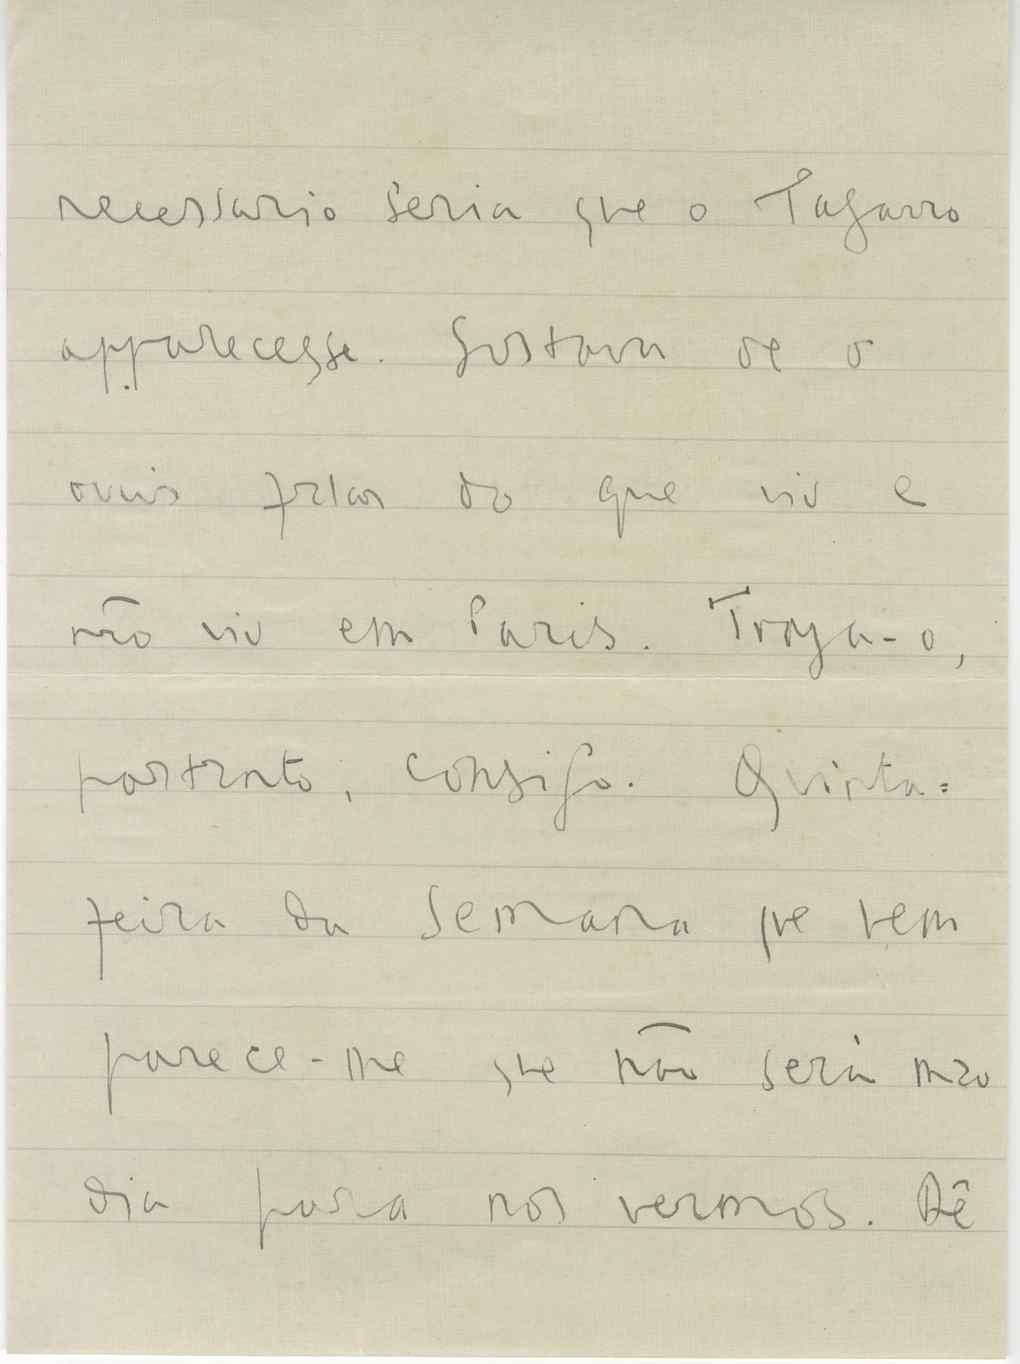 necessario seria que o Tagarro
apparecesse. Gostava de o
ouvir falar do que viu e
não viu em Paris. Traga-o,
portanto, consigo. Quinta=
feira da semana que vem
parece-me que não será mao
dia para nos vermos. Dê